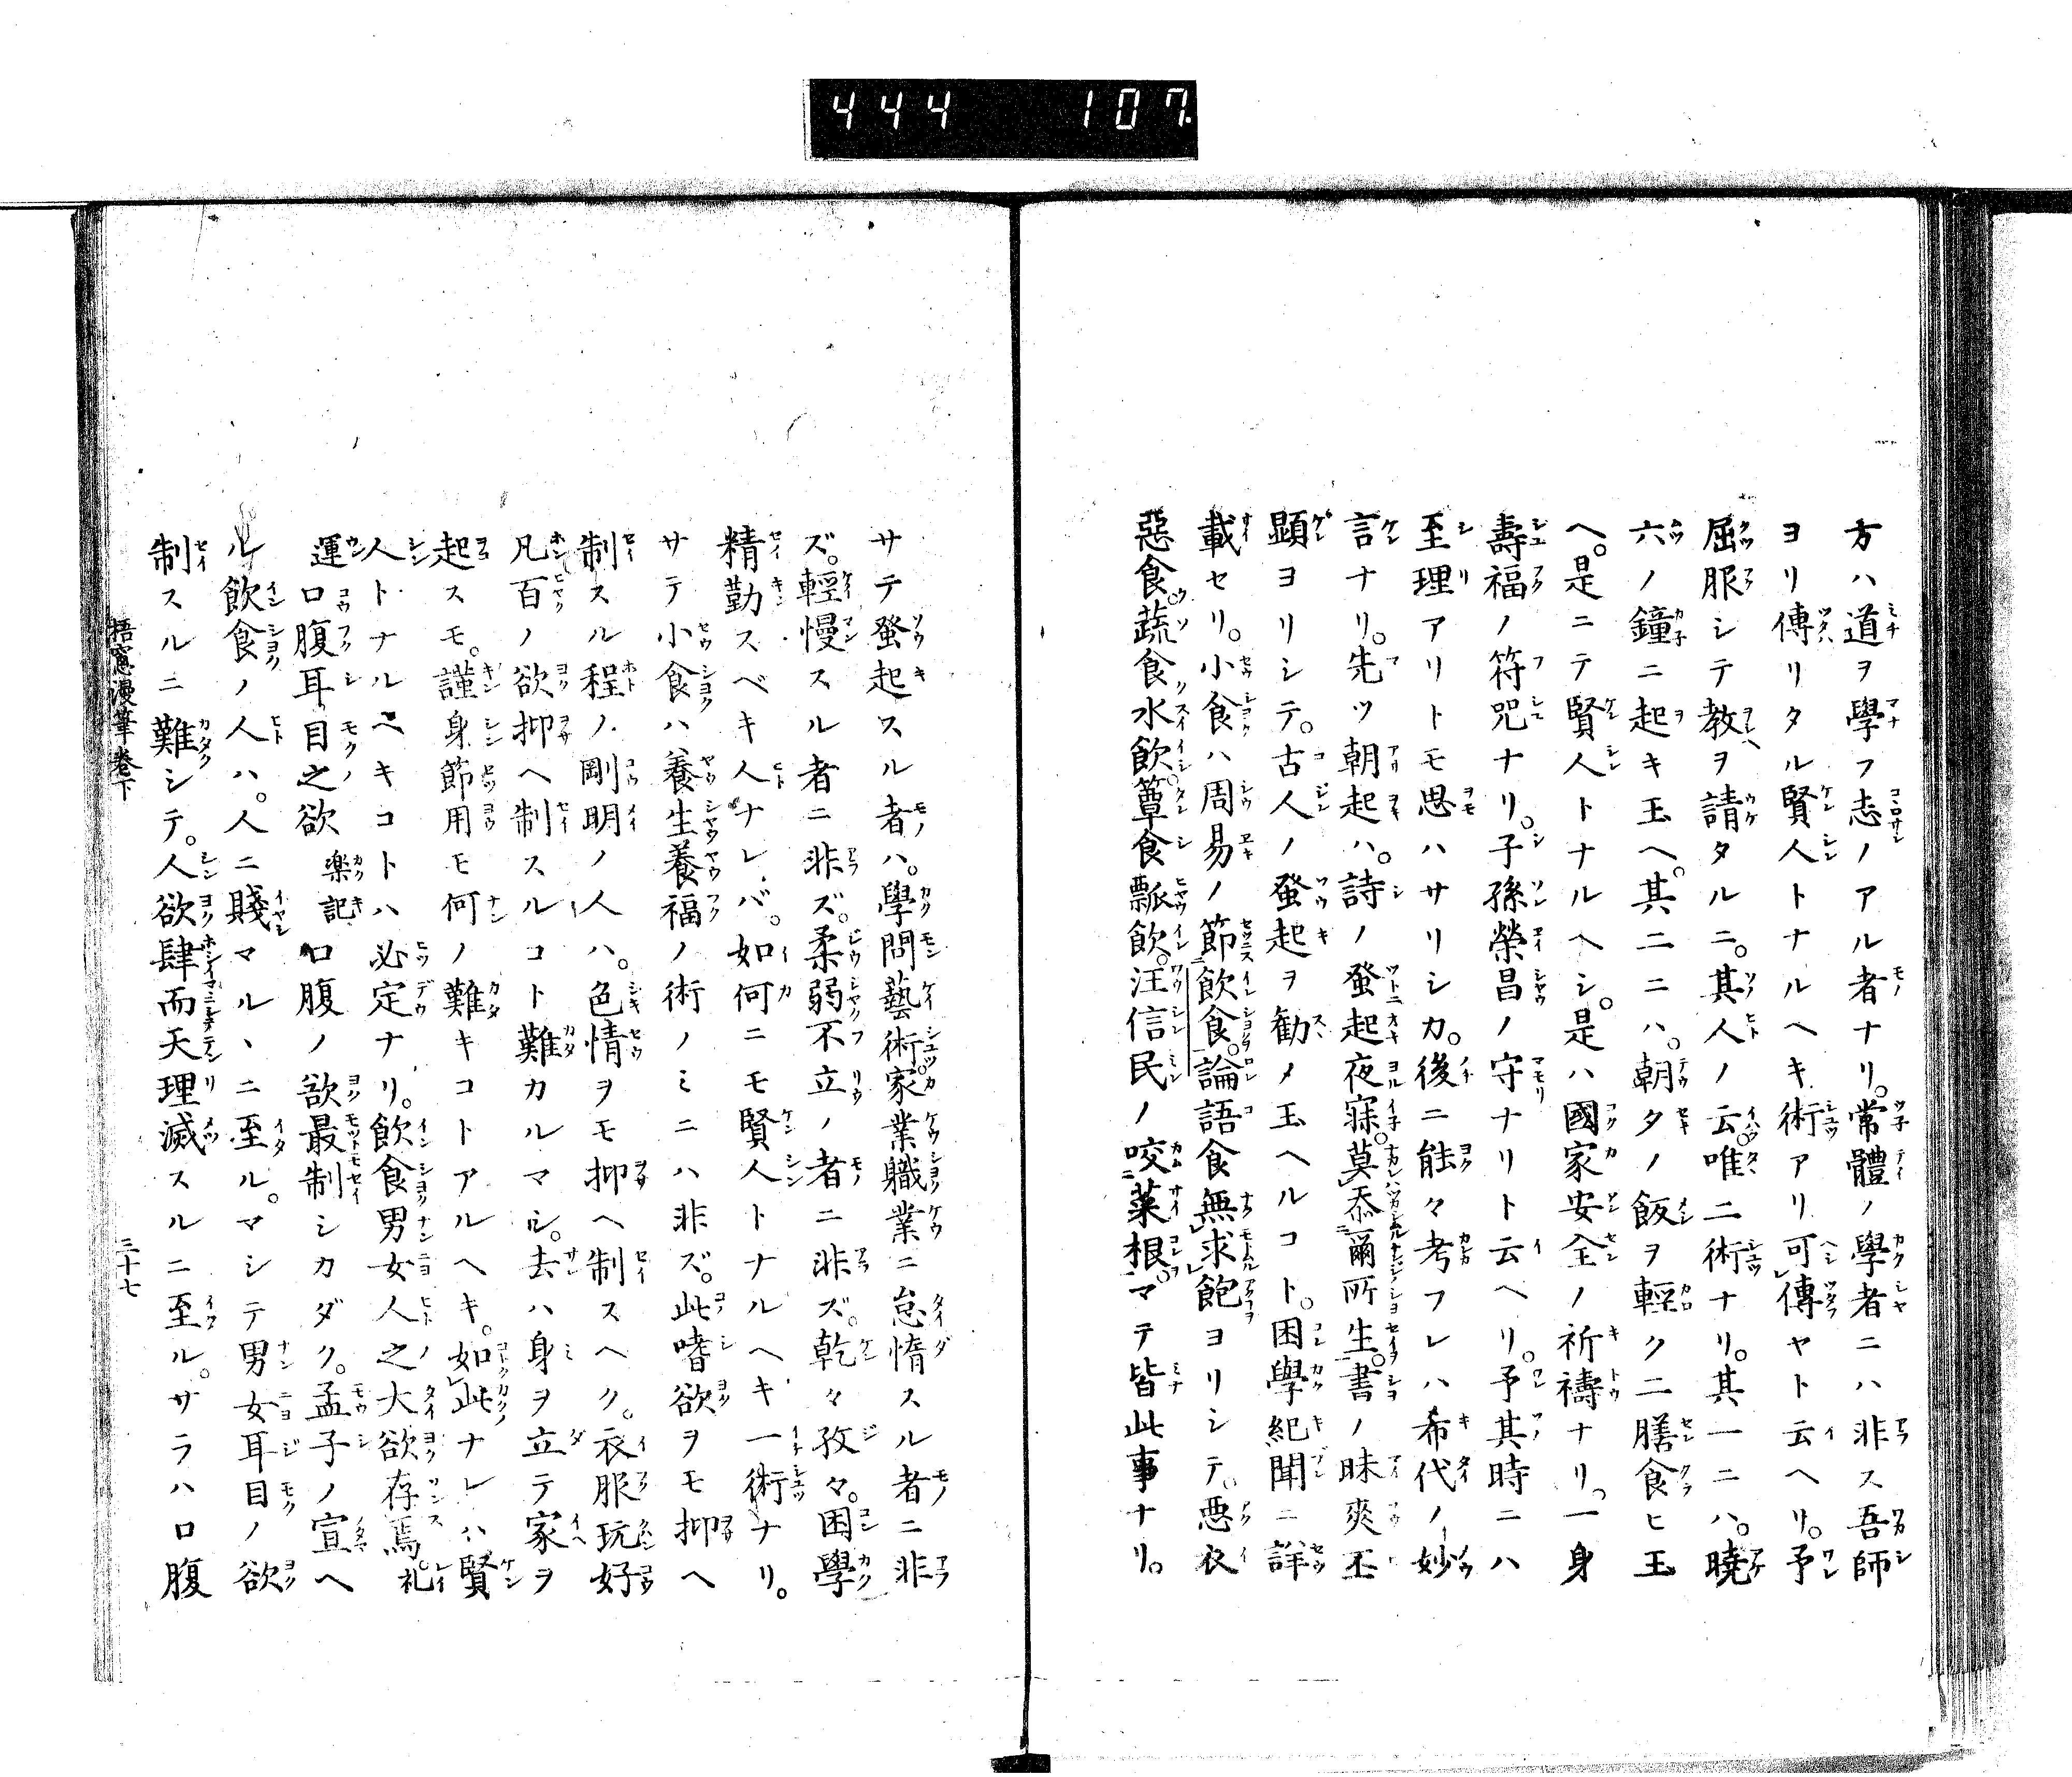 444 107.
方ハ道ヲ學フ志ノアル者ナリ。常體ノ學者ニハ非ス吾師
ヨリ傳リタル賢人トナルヘキ術アリ可傳ヤト云ヘリ。予
屈服シテ教ヲ請タルニ。其人ノ云。唯二術ナリ。其一ニハ。曉
六ノ鐘ニ起キ玉ヘ。其二ニハ。朝夕ノ飯ヲ輕ク二膳食ヒ玉
ヘ。是ニテ賢人トナルヘシ。是ハ國家安全ノ祈禱ナリ。一身
壽福ノ符咒ナリ。子孫榮昌ノ守ナリト云ヘリ。予其時ニハ
至理アリトモ思ハサリシカ。後ニ能々考フレハ希代ノ妙
言ナリ。先ツ朝起ハ。詩ノ蚤起夜寐。莫忝爾所生。書ノ昧爽丕
顯ヨリシテ。古人ノ蚤起ヲ勧メ玉ヘルコト。困學紀聞ニ詳
載セリ。小食ハ周易ノ節飲食。論語食無求飽ヨリシテ。悪衣
惡食。蔬食水飲。簞食瓢飲。汪信民ノ咬菜根。マテ皆此事ナリ。
サテ蚤起スル者ハ。學問藝術。家業職業ニ怠惰スル者ニ非
ズ。輕慢スル者ニ非ズ。柔弱不立ノ者ニ非ズ。乾々孜々。困學
精勤スベキ人ナレバ。如何ニモ賢人トナルヘキ一術ナリ。
サテ小食ハ養生養福ノ術ノミニハ非ズ。此嗜欲ヲモ抑ヘ
制スル程ノ剛明ノ人ハ。色情ヲモ抑ヘ制スヘク。衣服玩好
凡百ノ欲抑ヘ制スルコト難カルマシ。去ハ身ヲ立テ家ヲ
起スモ。謹身節用モ何ノ難キコトアルヘキ。如此ナレハ賢
人トナルヘキコトハ必定ナリ。飲食男女人之大欲存焉。礼
運口腹耳目之欲 楽記 口腹ノ欲最制シカダク。孟子ノ宣ヘ
ル飲食ノ人ハ。人ニ賤マルヽニ至ル。マシテ男女耳目ノ欲
制スルニ難シテ。人欲肆而天理滅スルニ至ル。サラハ口腹
梧窻漫筆 卷下 三十七